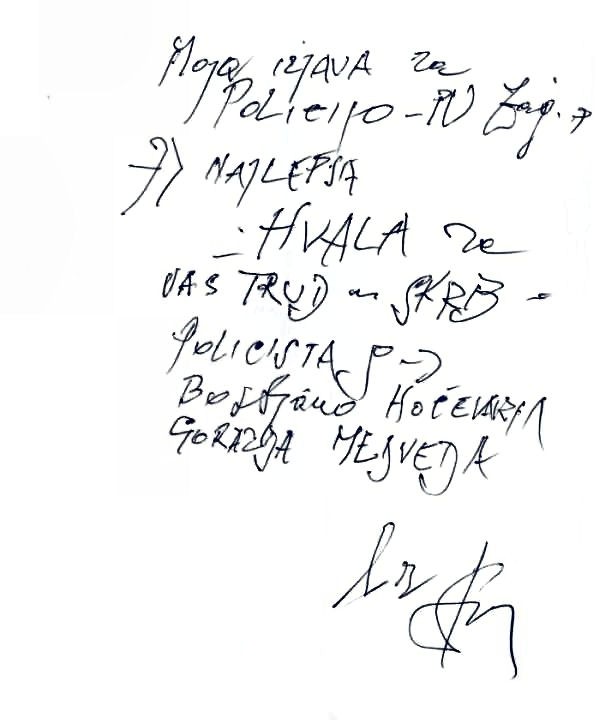 Moja izjava za
Policijo - PU Zag. →
NAJLEPŠA
HVALA za
VAŠ TRUD in SKRB -
POLICISTA
Boštjana HOČEVARJA
GORAZDA MEDVEDA